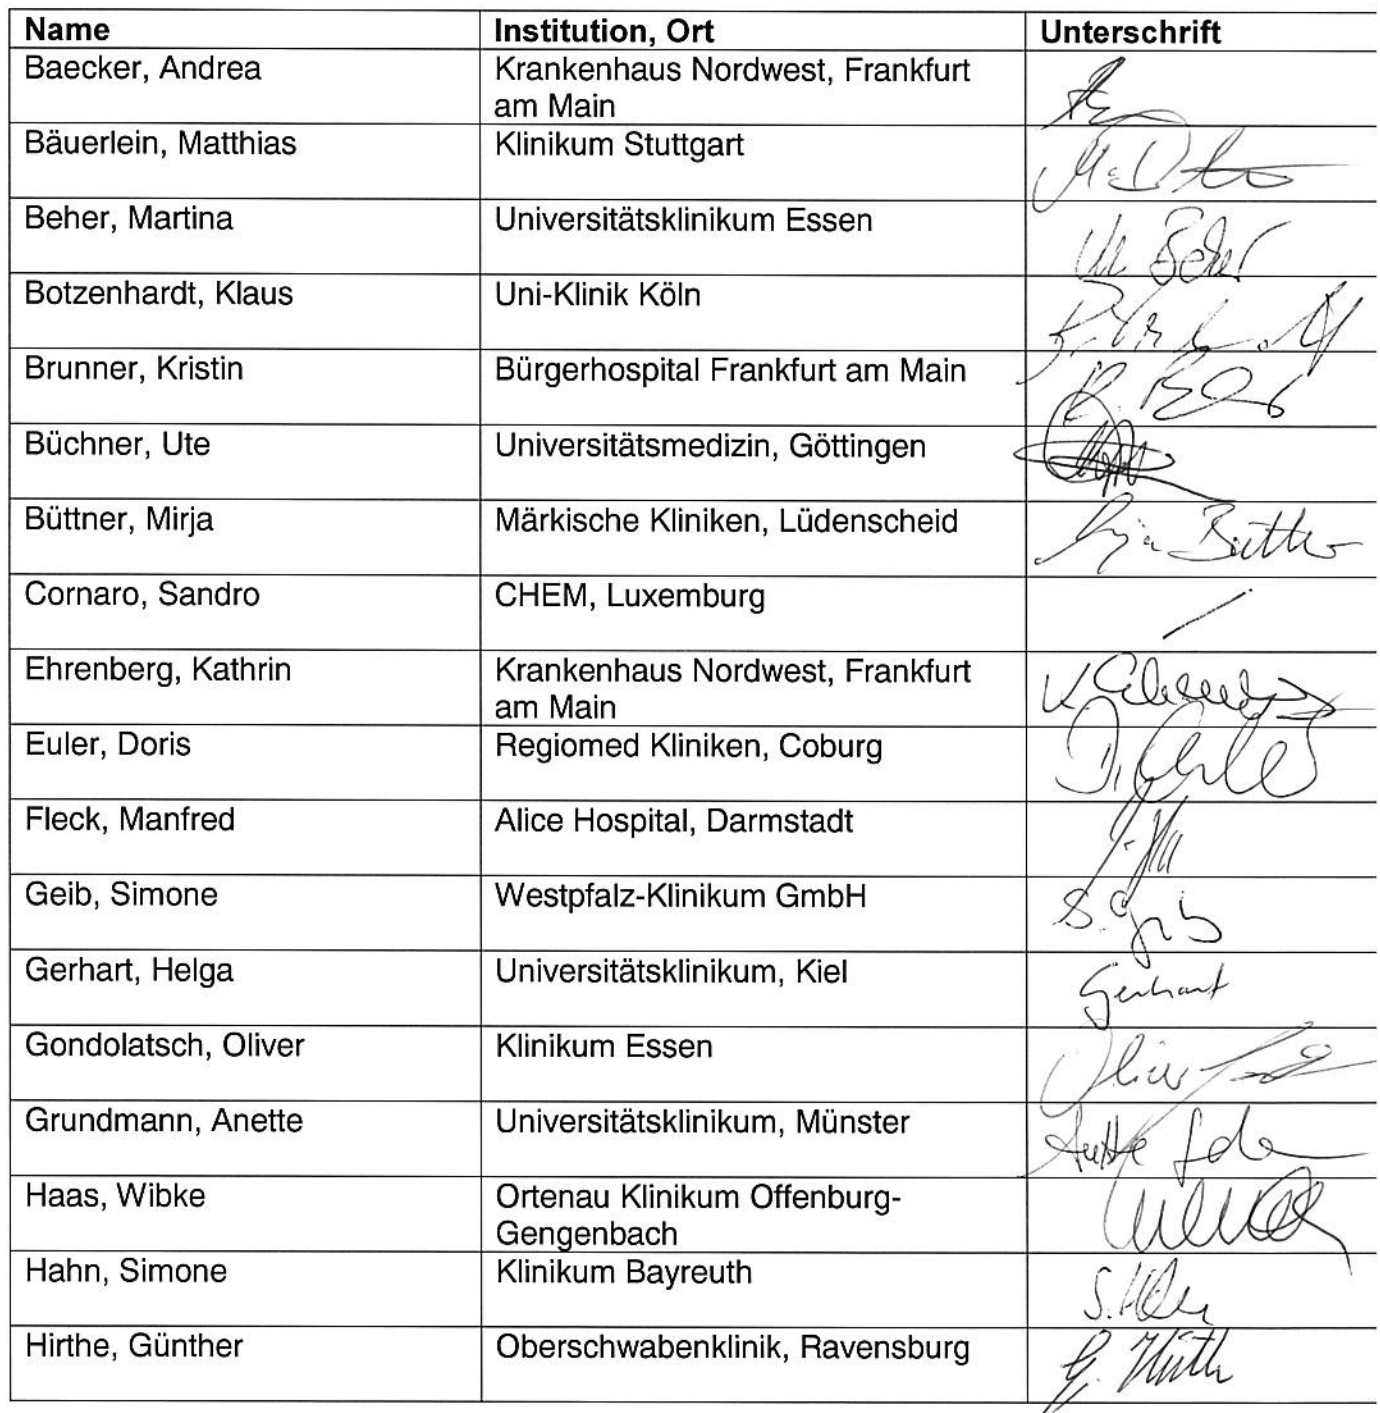 Name Institution, Ort Unterschrift
Baecker, Andrea Krankenhaus Nordwest, Frankfurt
am Main
Bäuerlein, Matthias Klinikum Stuttgart
Beher, Martina Universitätsklinikum Essen Beher
Botzenhardt, Klaus Uni-Klinik Köln
Brunner, Kristin Bürgerhospital Frankfurt am Main
Büchner, Ute Universitätsmedizin, Göttingen
Büttner, Mirja Märkische Kliniken, Lüdenscheid
Cornaro, Sandro CHEM, Luxemburg
Ehrenberg, Kathrin Krankenhaus Nordwest, Frankfurt
am Main
Euler, Doris Regiomed Kliniken, Coburg
Fleck, Manfred Alice Hospital, Darmstadt
Geib, Simone Westpfalz-Klinikum GmbH
Gerhart, Helga Universitätsklinikum, Kiel Gerhart
Gondolatsch, Oliver Klinikum Essen
Grundmann, Anette Universitätsklinikum, Münster
Haas, Wibke Ortenau Klinikum Offenburg-
Gengenbach
Hahn, Simone Klinikum Bayreuth
Hirthe, Günther Oberschwabenklinik, Ravensburg